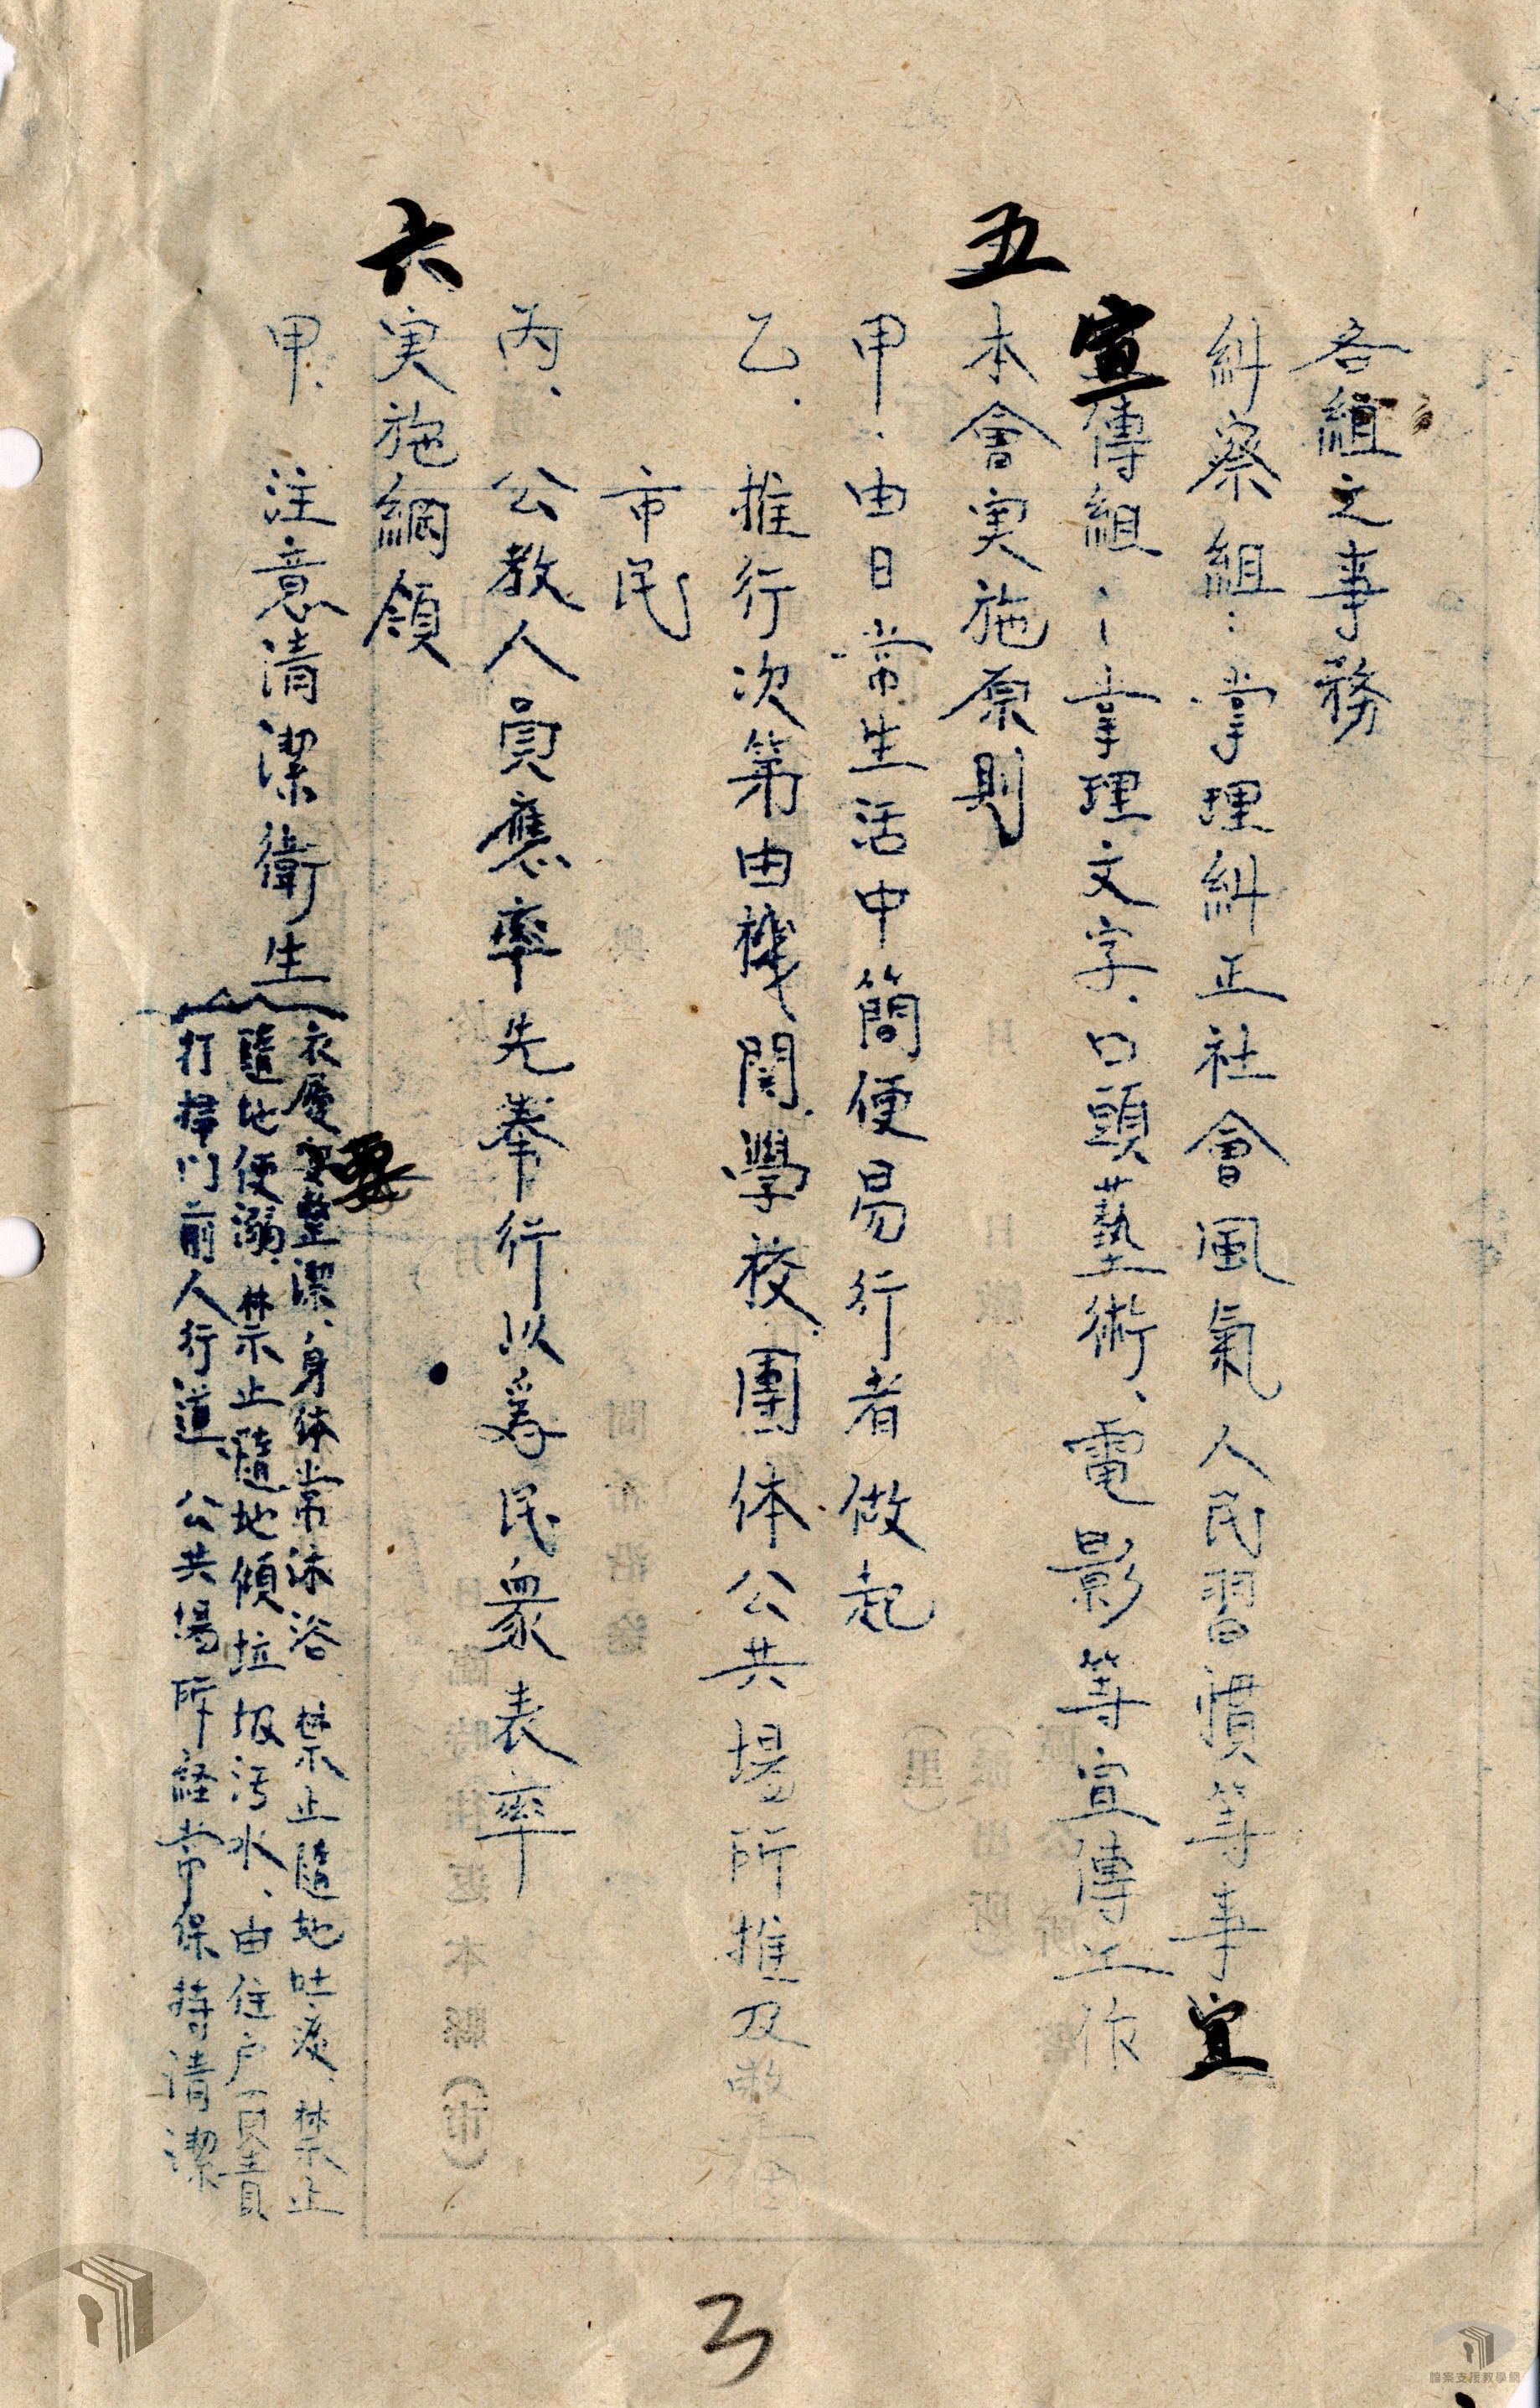 各組之事務
糾察組:掌理糾正社會風氣人民習慣等事宜
宣傳組:掌理文字、口頭藝術、電影等宣傳工作
五
本會実施原則
甲、由日常生活中簡便易行者做起
乙、推行次第由機関、學校、團体公共場所推及
市民
丙、公教人員應率先奉行以爲民衆表率
六
実施綱領
甲、注意清潔衛生
衣履要整潔、身体常沐浴、禁止隨地吐痰、禁止
隨地便溺、禁止隨地傾垃圾污水、由住户負責
打掃门前人行道、公共場所経常保持清潔
3
檔案支援教學網